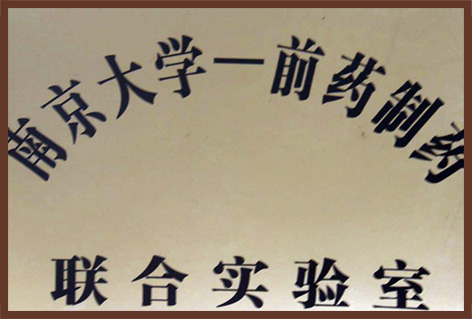 南京大学一前药制药
联合实验室